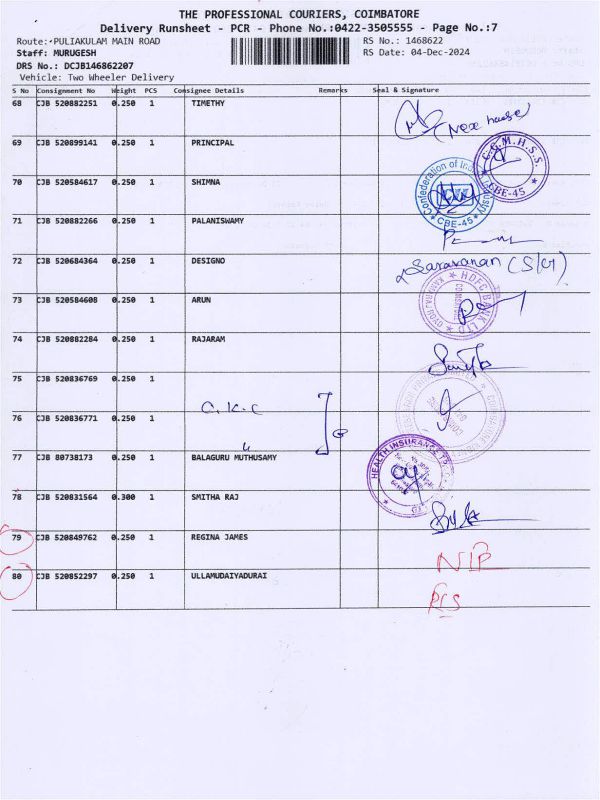 THE PROFESSIONAL COURIERS, COIMBATORE
Delivery Runsheet - PCR - Phone No.:0422-3505555 - Page No.:7
Route: PULIAKULAM MAIN ROAD RS No.: 1468622
Staff: MURUGESH RS Date: 04-Dec-2024
DRS No.: DCJB146862207
Vehicle: Two Wheeler Delivery
S No Consignment No Weight PCS Consignee Details Remarks Seal & Signature
68 CJB 520882251 0.250 1 TIMETHY
69 CJB 520899141 0.250 1 PRINCIPAL C.G.M.H.S.S CBE-45
70 CJB 520584617 0.250 1 SHIMNA Confederation of CBE-45
71 CJB 520882266 0.250 1 PALANISWAMY
72 CJB 520684364 0.250 1 DESIGNO Saravanan
73 CJB 520584608 0.250 1 ARUN HDFC BANK LTD
74 CJB 520882284 0.250 1 RAJARAM
75 CJB 520836769 0.250 1
76 CJB 520836771 0.250 1
77 CJB 80738173 0.250 1 BALAGURU MUTHUSAMY HEALTH INSURANCE
78 CJB 520831564 0.300 1 SMITHA RAJ
79 CJB 520849762 0.250 1 REGINA JAMES
80 CJB 520852297 0.250 1 ULLAMUDAIYADURAI